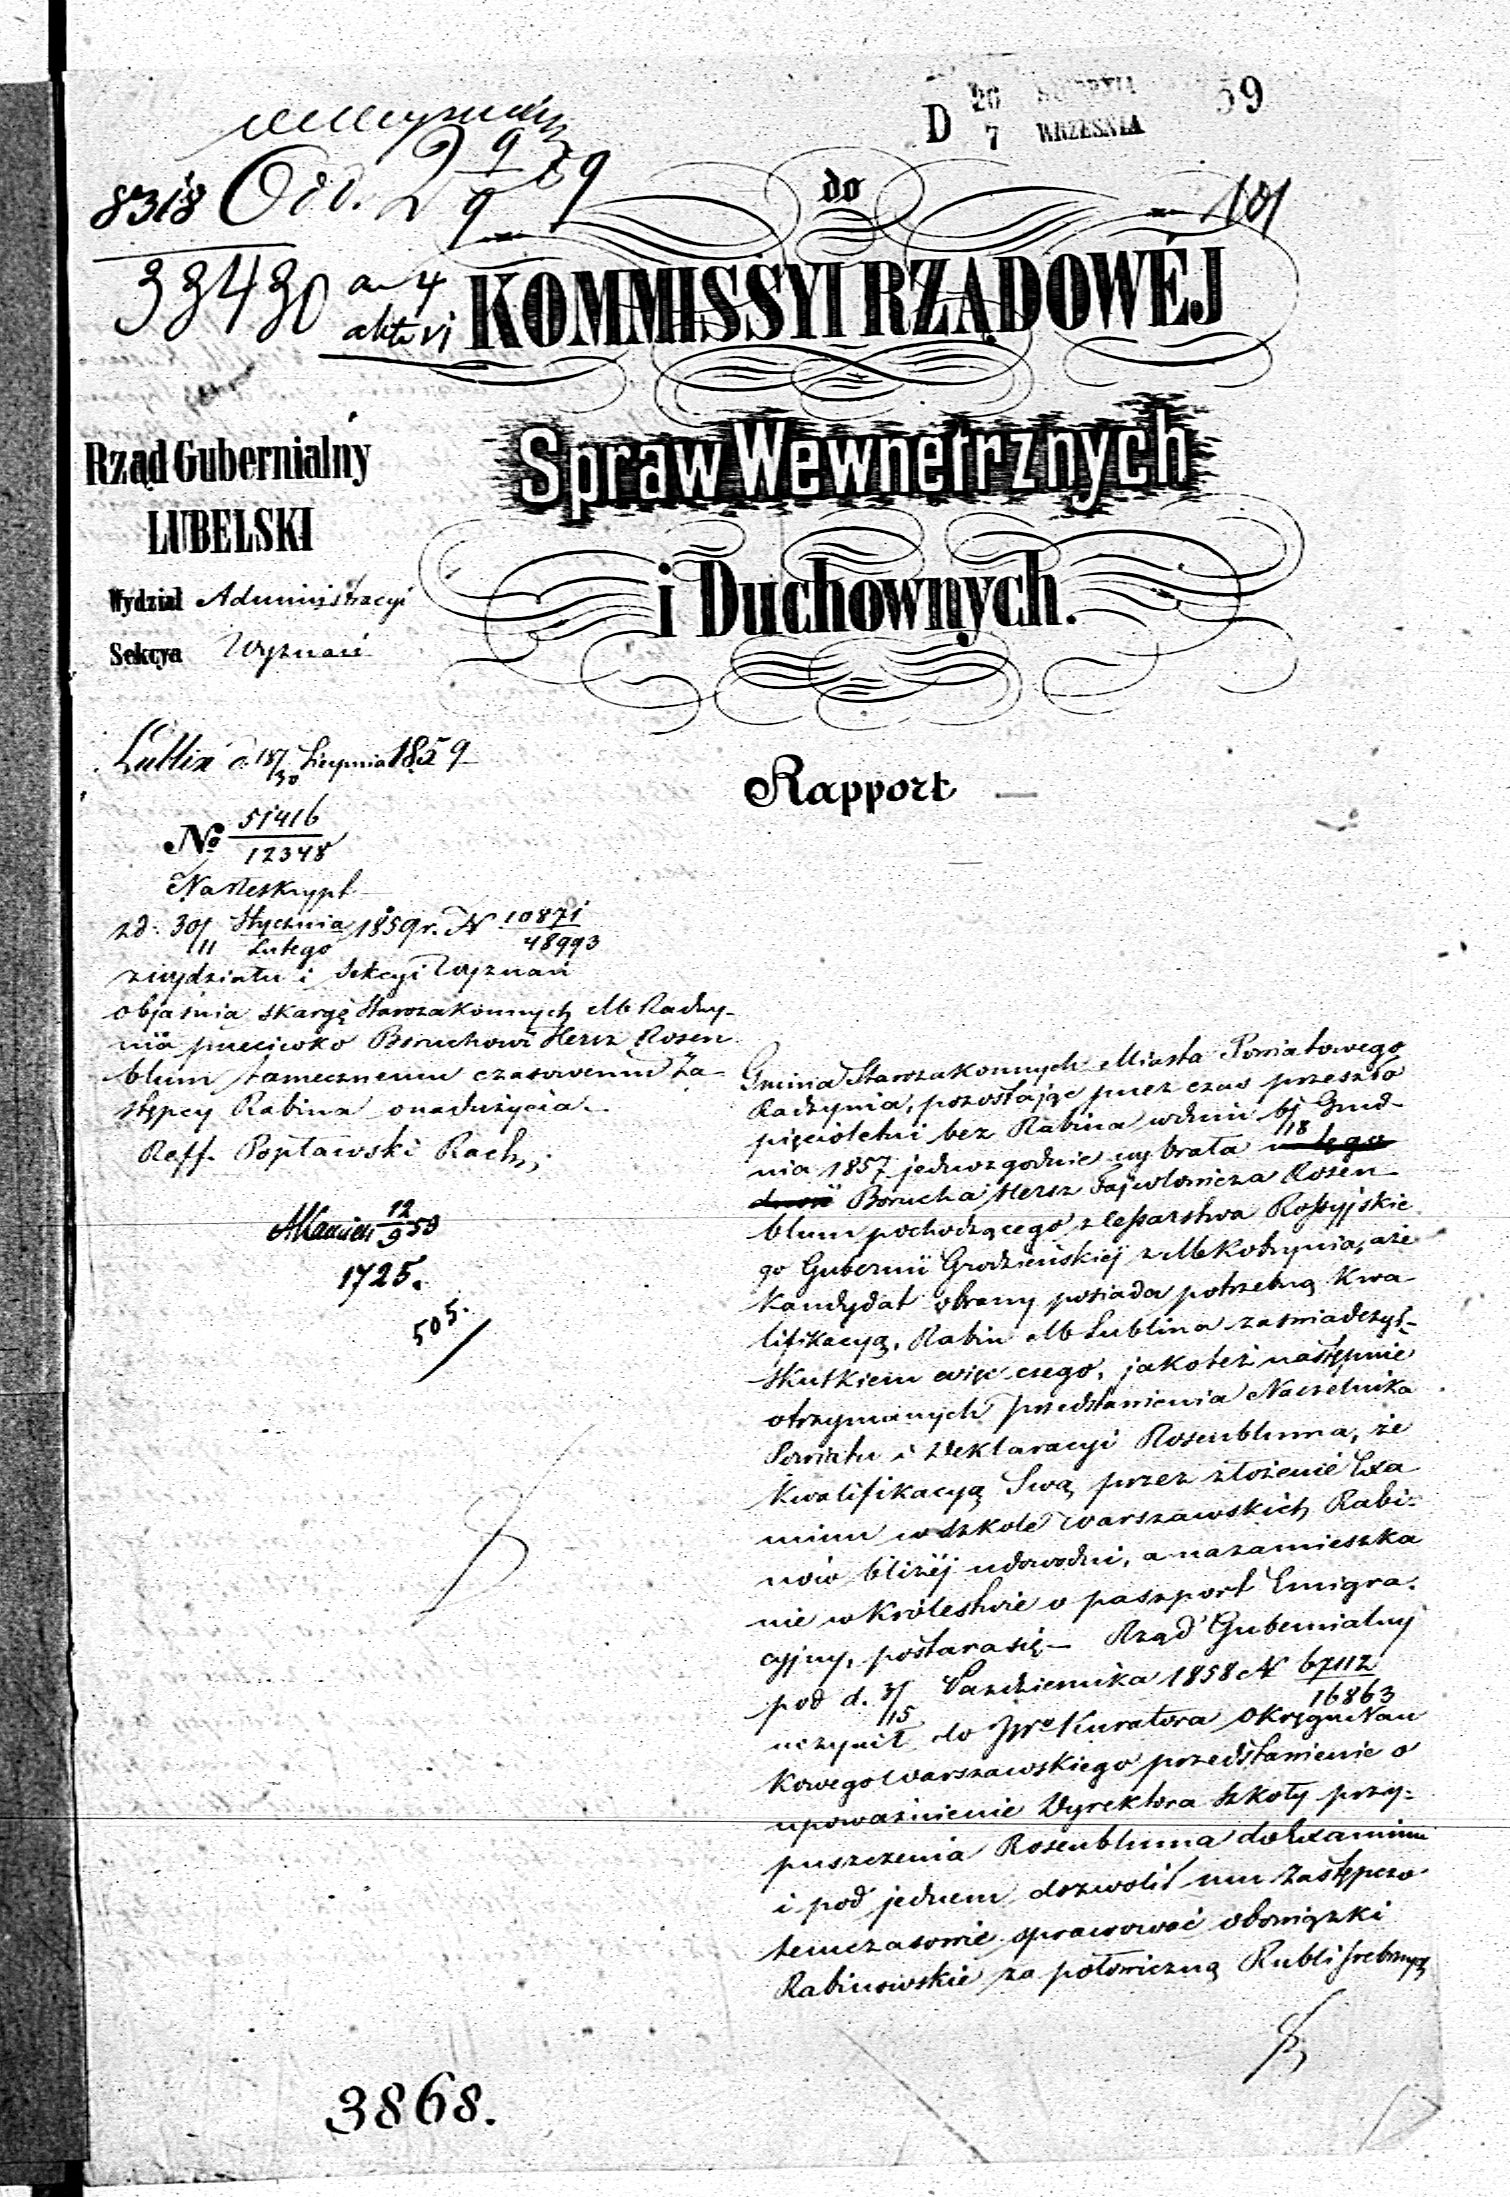 D 26 SIERPNIA 59
7 WRZEŚNIA
8318 Odd. 2 9/9 59
33430
101
do
KOMMISSYI RZĄDOWÉJ
Spraw Wewnetrznych
i Duchownych.
Rząd Gubernialny
LUBELSKI
Wydział Administracyi
Sekcya Wyznań
Lublin d. 18/30 Sierpnia 1859
No 51416/12348
Na Reskrypt
z d. 30/11 Stycznia/Lutego 1859 r. N 10871/48993
z wydziału i Sekcyi Wyznań
objaśnia skargę Starozakonnych M. Radzy-
nia przeciwko Boruchowi Hersz Rosen
blum tamecznemu czasowemu Za-
stępcy Rabina o nadużycia.
Reff. Popławski Rach.
12/9 59
1725.
505.
Rapport
Gmina Starozakonnych Miasta Powiatowego
Radzynia, pozostając przez czas przeszło
pięcioletni bez Rabina w dniu 6/18 Grud-
nia 1857 jednozgodnie wybrała
Borucha Hersz Fajwlowicza Rosen-
blum pochodzącego z Cesarstwa Rossyjskie
go Gubernii Grodzieńskiej z M. Kobrynia, a że
Kandydat obrany posiada potrzebną Kwa-
lifikacyą, Rabin M. Lublina zaświadczył.
Skutkiem więc czego, jakoteż następnie
otrzymanych przedstawienia Naczelnika
Powiatu i Deklaracyi Rosenbluma, że
Kwalifikacyą Swą przez złożenie Exa
minu w Szkole Warszawskich Rabi-
nów bliżéj udowodni, a na zamieszka
nie w Królestwie o paszport Emigra-
cyjny, postara się – Rząd Gubernialny
pod d. 3/15 Października 1858 N 67112/16863
uczynił do JWo Kuratora Okręgu Nau
kowego Warszawskiego przedstawienie o
upoważnienie Dyrektora Szkoły przy-
puszczenia Rosenbluma do Examinu
i pod jednem dozwolił mu Zastępczo
temczasowie sprawować obowiązki
Rabinowskie za połowiczną Rubli srebrnych
3868.